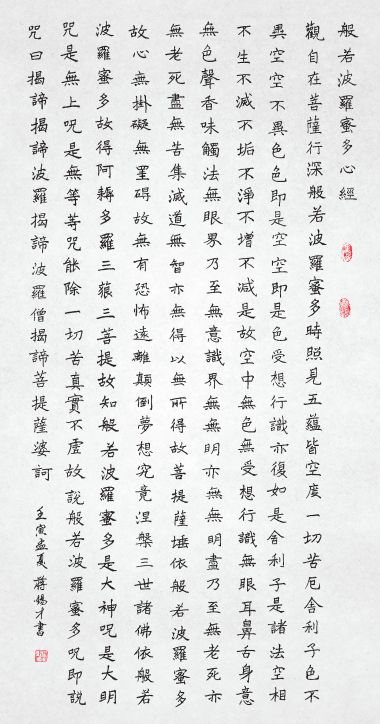 般若波羅蜜多心經
觀自在菩薩行深般若波羅蜜多時照見五蘊皆空度一切苦厄舍利子色不
異空空不異色色即是空空即是色受想行識亦復如是舍利子是諸法空相
不生不滅不垢不淨不增不減是故空中無色無受想行識無眼耳鼻舌身意
無色聲香味觸法無眼界乃至無意識界無無明亦無無明盡乃至無老死亦
無老死盡無苦集滅道無智亦無得以無所得故菩提薩埵依般若波羅蜜多
故心無掛礙無罣碍故無有恐怖遠離顛倒夢想究竟涅槃三世諸佛依般若
波羅蜜多故得阿耨多羅三藐三菩提故知般若波羅蜜多是大神咒是大明
咒是無上咒是無等等咒能除一切苦真實不虛故說般若波羅蜜多咒即說
咒曰揭諦揭諦波羅揭諦波羅僧揭諦菩提薩婆訶
壬寅盛夏蔣錫才書